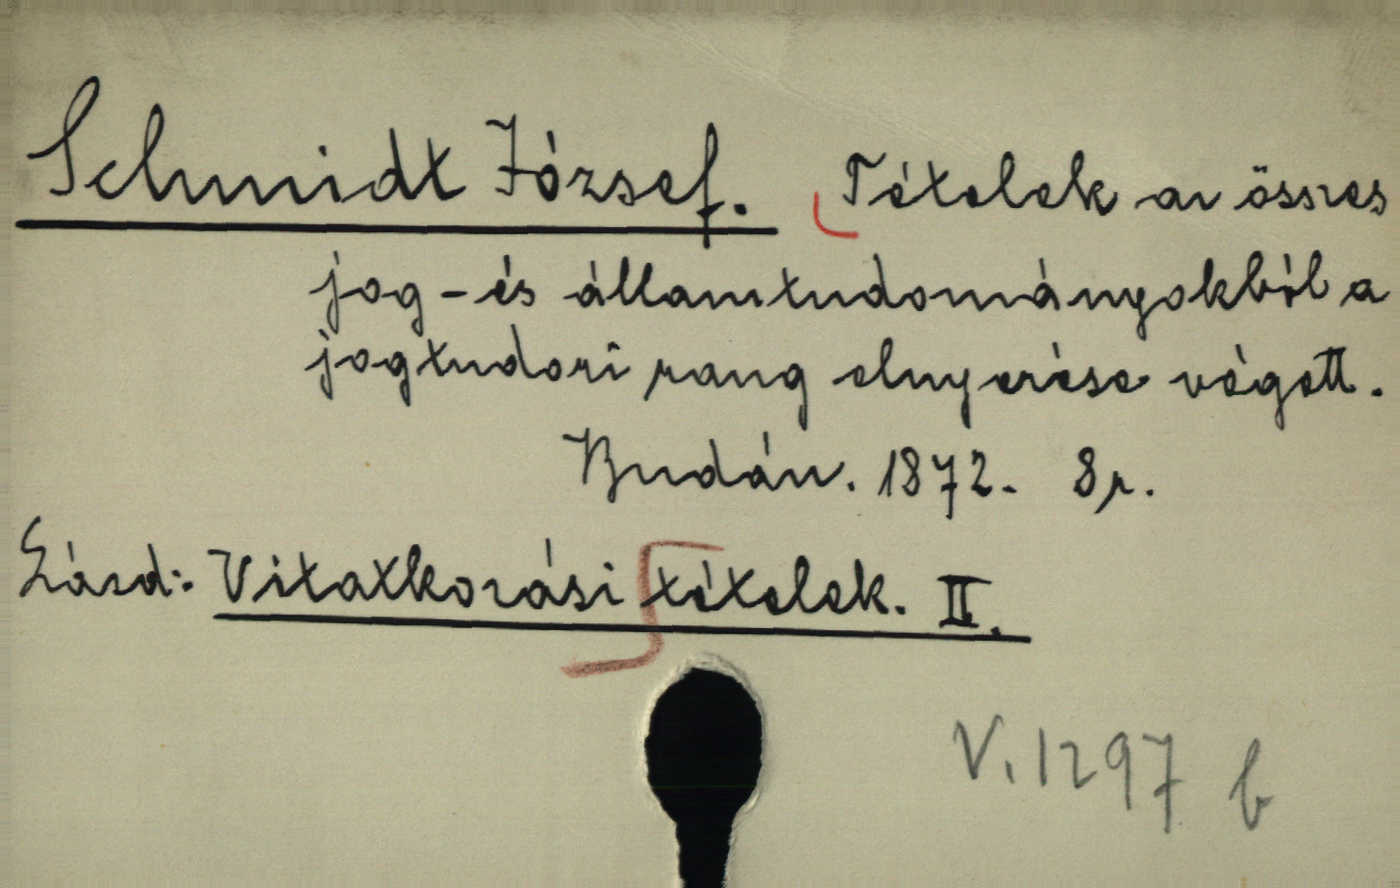 Schmidt József. Tételek az összes
jog-és államtudományokból a
jogtudori rang elnyerése végett.
Budán. 1872. 8r.
Lásd: Vitatkozási tételek. II.
V. 1297 b